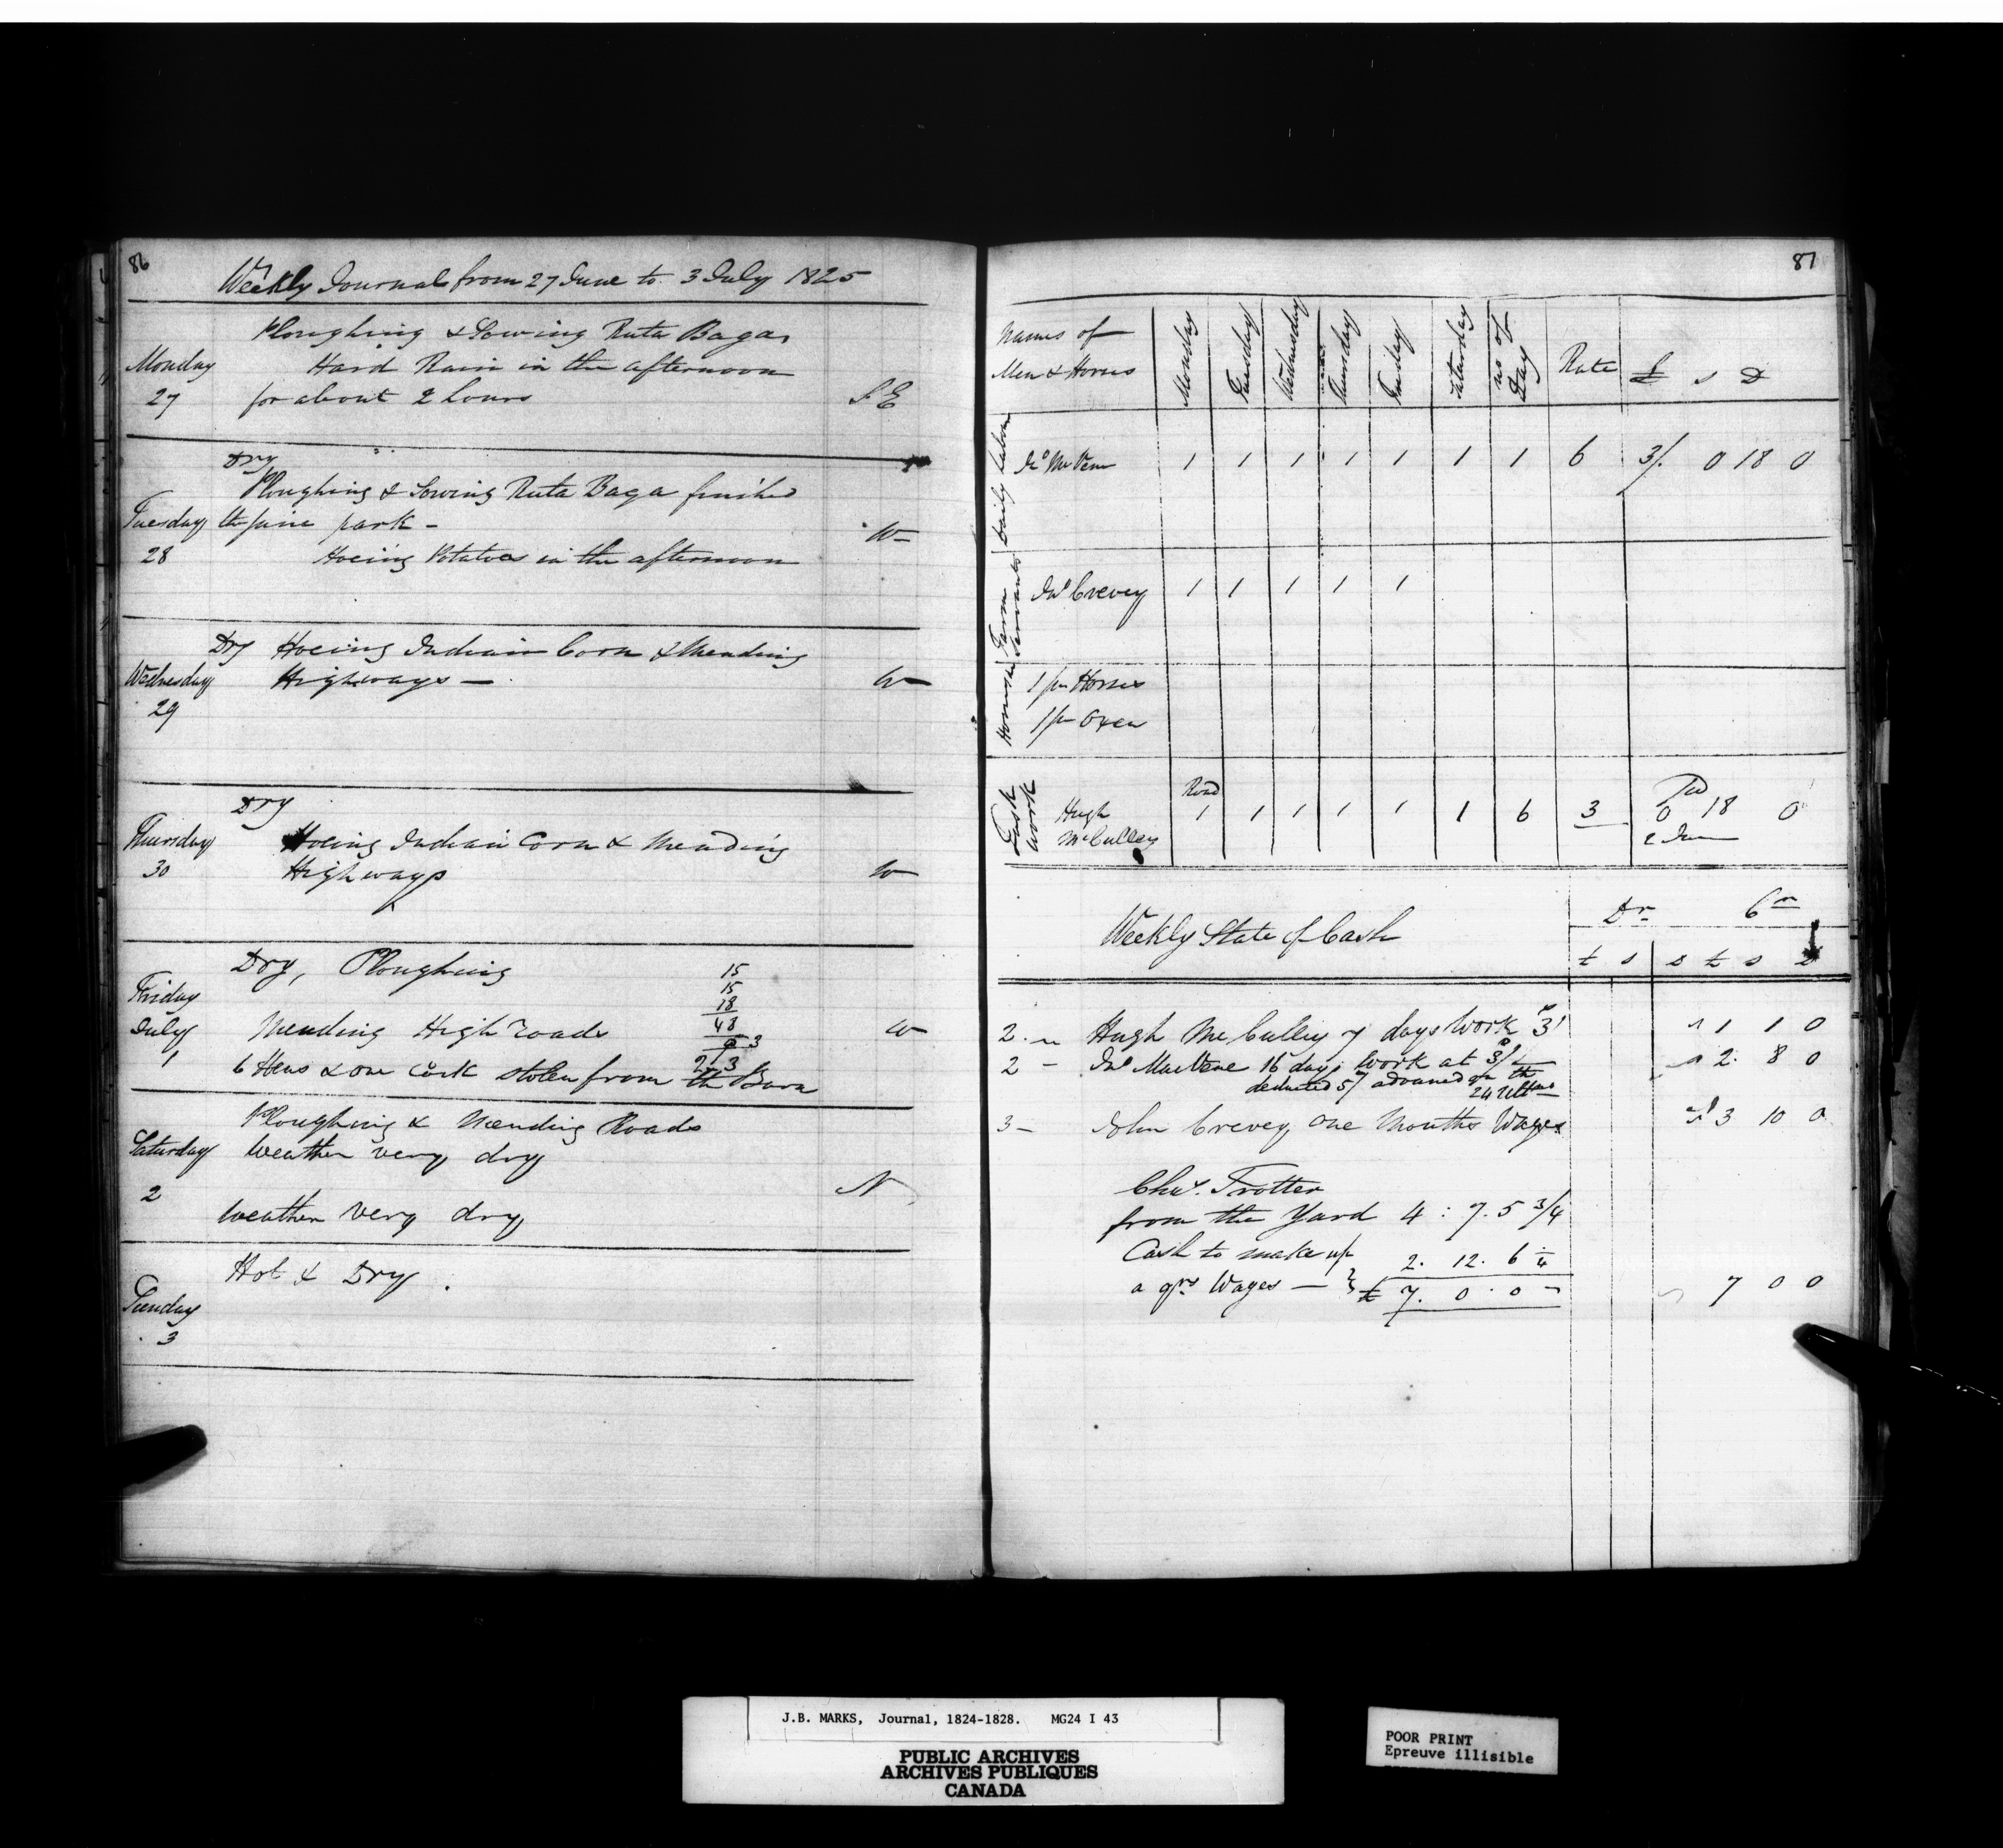 86
Weekly Journal from 27 June to 3 July 1825
Ploughing & Sowing Ruta Baga
Monday Hard Rain in the afternoon
27 for about 2 hours S E
Dry
Ploughing & Sowing Ruta Baga finished
Tuesday the pine park - W
28 Hoeing Potatoes in the afternoon
Dry Hoeing Indian Corn & Mending
Wednesday Highways — W
29
Dry
Thursday Hoeing Indian Corn & Mending
30 Highways W
Dry, Ploughing 15
Friday 15
18
July Mending High roads 48 W
1 3
6 Hens & one Cock stolen from the Barn 2 3
Ploughing & Mending Roads
Saturday Weather very dry
2 N
Weather very dry
Hot & Dry
Sunday
3
81
Names of Men & Horses Monday Tuesday Wednesday Thursday Friday Saturday no of Day Rate £ s D
Daily Labor Jno McVene 1 1 1 1 1 1 1 6 3/. 0 18 0
Farm Servants Jno Crevey 1 1 1 1 1
Horses 1 pr Horses
1 pr Oxen
Task Work Road
Hugh McCulley 1 1 1 1 1 1 6 3 0 18 0
Weekly State of Cash Dr Cr
£ s D £ s D
2 Hugh McCulley 7 days Work 3/ 1 1 0
2 - Jno MacVene 16 days Work at 3/ 2. 8 0
deducted 5/ advanced on the
24 Ultmo
3 - John Crevey, One Months Wages 3 10 0
Chas. Trotter
from the Yard 4 : 7. 5 3/4
Cash to make up 2. 12. 6 1/4
a qrs Wages — £ 7. 0. 0 7 0 0
J.B. MARKS, Journal, 1824-1828. MG24 I 43
PUBLIC ARCHIVES
ARCHIVES PUBLIQUES
CANADA
POOR PRINT
Epreuve illisible